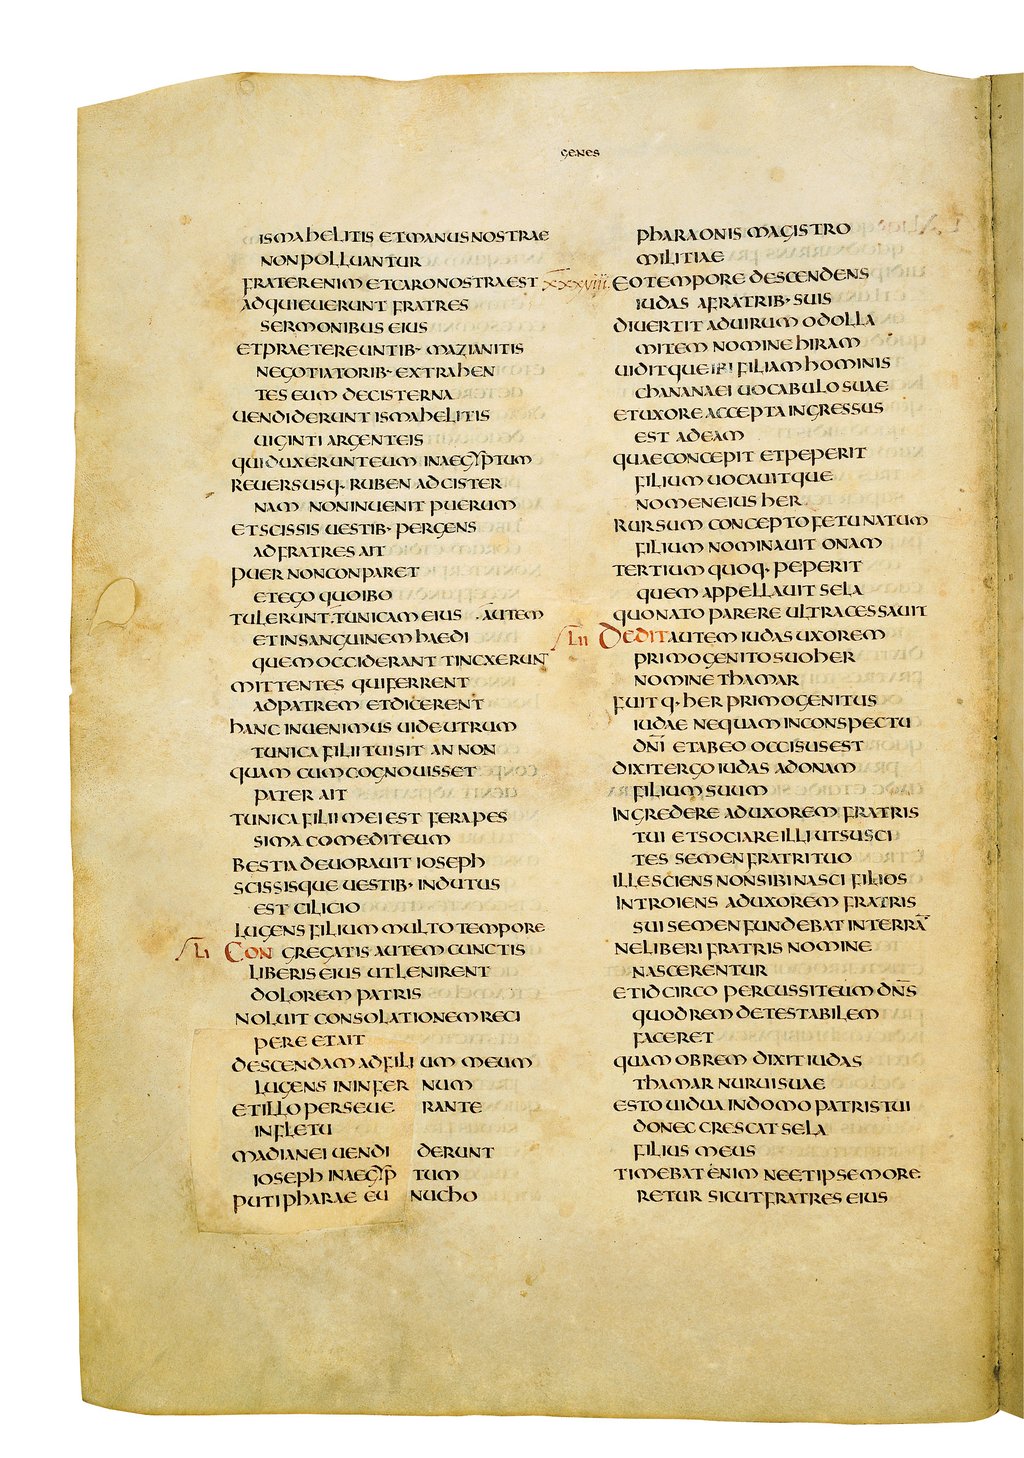 GENES
ISMAHELITIS ETMANUSNOSTRAE
NON POLLUANTUR
FRATERENIM ETCARONOSTRAEST
ADQUIEUERUNT FRATRES
SERMONIBUS EIUS
ETPRAETEREUNTIB· MAZIANITIS
NEGOTIATORIB· EXTRAHEN
TES EUM DECISTERNA
UENDIDERUNT ISMAHELITIS
UIGINTI ARGENTEIS
QUIDUXERUNTEUM INAEGYPTUM
REUERSUSQ· RUBEN ADCISTER
NAM NONINUENIT PUERUM
ETSCISSIS UESTIB· PERGENS
ADFRATRES AIT
PUER NONCONPARET
ETEGO QUOIBO
TULERUNT TUNICAM EIUS AUTEM
ETINSANGUINEM HAEDI
QUEM OCCIDERANT TINCXERUNT
MITTENTES QUIFERRENT
ADPATREM ETDICERENT
HANC INUENIMUS UIDEUTRUM
TUNICA FILIITUISIT AN NON
QUAM CUMCOGNOUISSET
PATER AIT
TUNICA FILII MEI EST FERAPES
SIMA COMEDITEUM
BESTIA DEUORAUIT IOSEPH
SCISSISQUE UESTIB· INDUTUS
EST CILICIO
LUGENS FILIUM MULTO TEMPORE
LI CON GREGATIS AUTEM CUNCTIS
LIBERIS EIUS UT LENIRENT
DOLOREM PATRIS
NOLUIT CONSOLATIONEM RECI
PERE ET AIT
DESCENDAM AD FILI UM MEUM
LUGENS ININFER NUM
ETILLO PERSEUE RANTE
INFLETU
MADIANEI UENDI DERUNT
IOSEPH INAEGYP TUM
PUTIPHARAE EU NUCHO
PHARAONIS MAGISTRO
MILITIAE
XXXVIII. EOTEMPORE DESCENDENS
IUDAS AFRATRIB· SUIS
DIUERTIT ADUIRUM ODOLLA
MITEM NOMINE HIRAM
UIDITQUE IBI FILIAM HOMINIS
CHANANAEI UOCABULO SUAE
ETUXORE ACCEPTA INGRESSUS
EST ADEAM
QUAECONCEPIT ETPEPERIT
FILIUM UOCAUITQUE
NOMENEIUS HER
RURSUM CONCEPTO FETU NATUM
FILIUM NOMINAUIT ONAM
TERTIUM QUOQ· PEPERIT
QUEM APPELLAUIT SELA
QUONATO PARERE ULTRACESSAUIT
LII DEDIT AUTEM IUDAS UXOREM
PRIMOGENITO SUO HER
NOMINE THAMAR
FUIT Q· HER PRIMOGENITUS
IUDAE NEQUAM INCONSPECTU
DN̄I ETABEO OCCISUSEST
DIXIT ERGO IUDAS ADONAM
FILIUM SUUM
INGREDERE ADUXOREM FRATRIS
TUI ETSOCIARE ILLI UTSUSCI
TES SEMEN FRATRITUO
ILLESCIENS NONSIBI NASCI FILIOS
INTROIENS ADUXOREM FRATRIS
SUI SEMEN FUNDEBAT INTERRĀ
NELIBERI FRATRIS NOMINE
NASCERENTUR
ETIDCIRCO PERCUSSITEUM DN̄S
QUOD REM DETESTABILEM
FACERET
QUAM OBREM DIXIT IUDAS
THAMAR NURUI SUAE
ESTO UIDUA INDOMO PATRISTUI
DONEC CRESCAT SELA
FILIUS MEUS
TIMEBAT ENIM NEETIPSE MORE
RETUR SICUT FRATRES EIUS